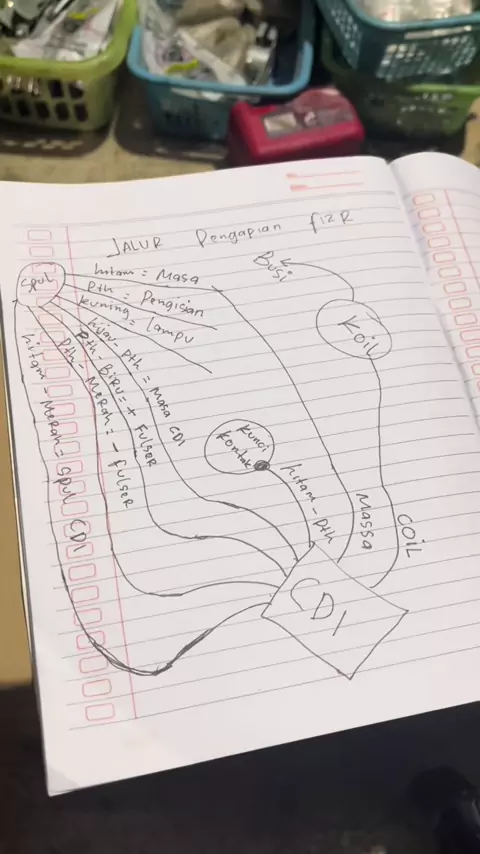 JALUR Pengapian fizR
Spul
hitam = Masa
Pth = Pengisian
kuning = lampu
hijau - Pth = Masa CDI
Pth - Biru = + Fulser
Pth - Merah = - fulser
hitam - Merah = Spul CDI
Busi
KOIL
Kunci
Kontak
hitam - Pth
MASSA
COIL
CDI